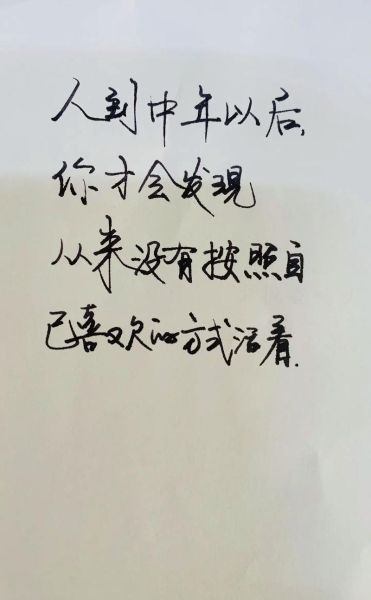 人到中年以后,
你才会发现
从来没有按照自
己喜欢的方式活着.